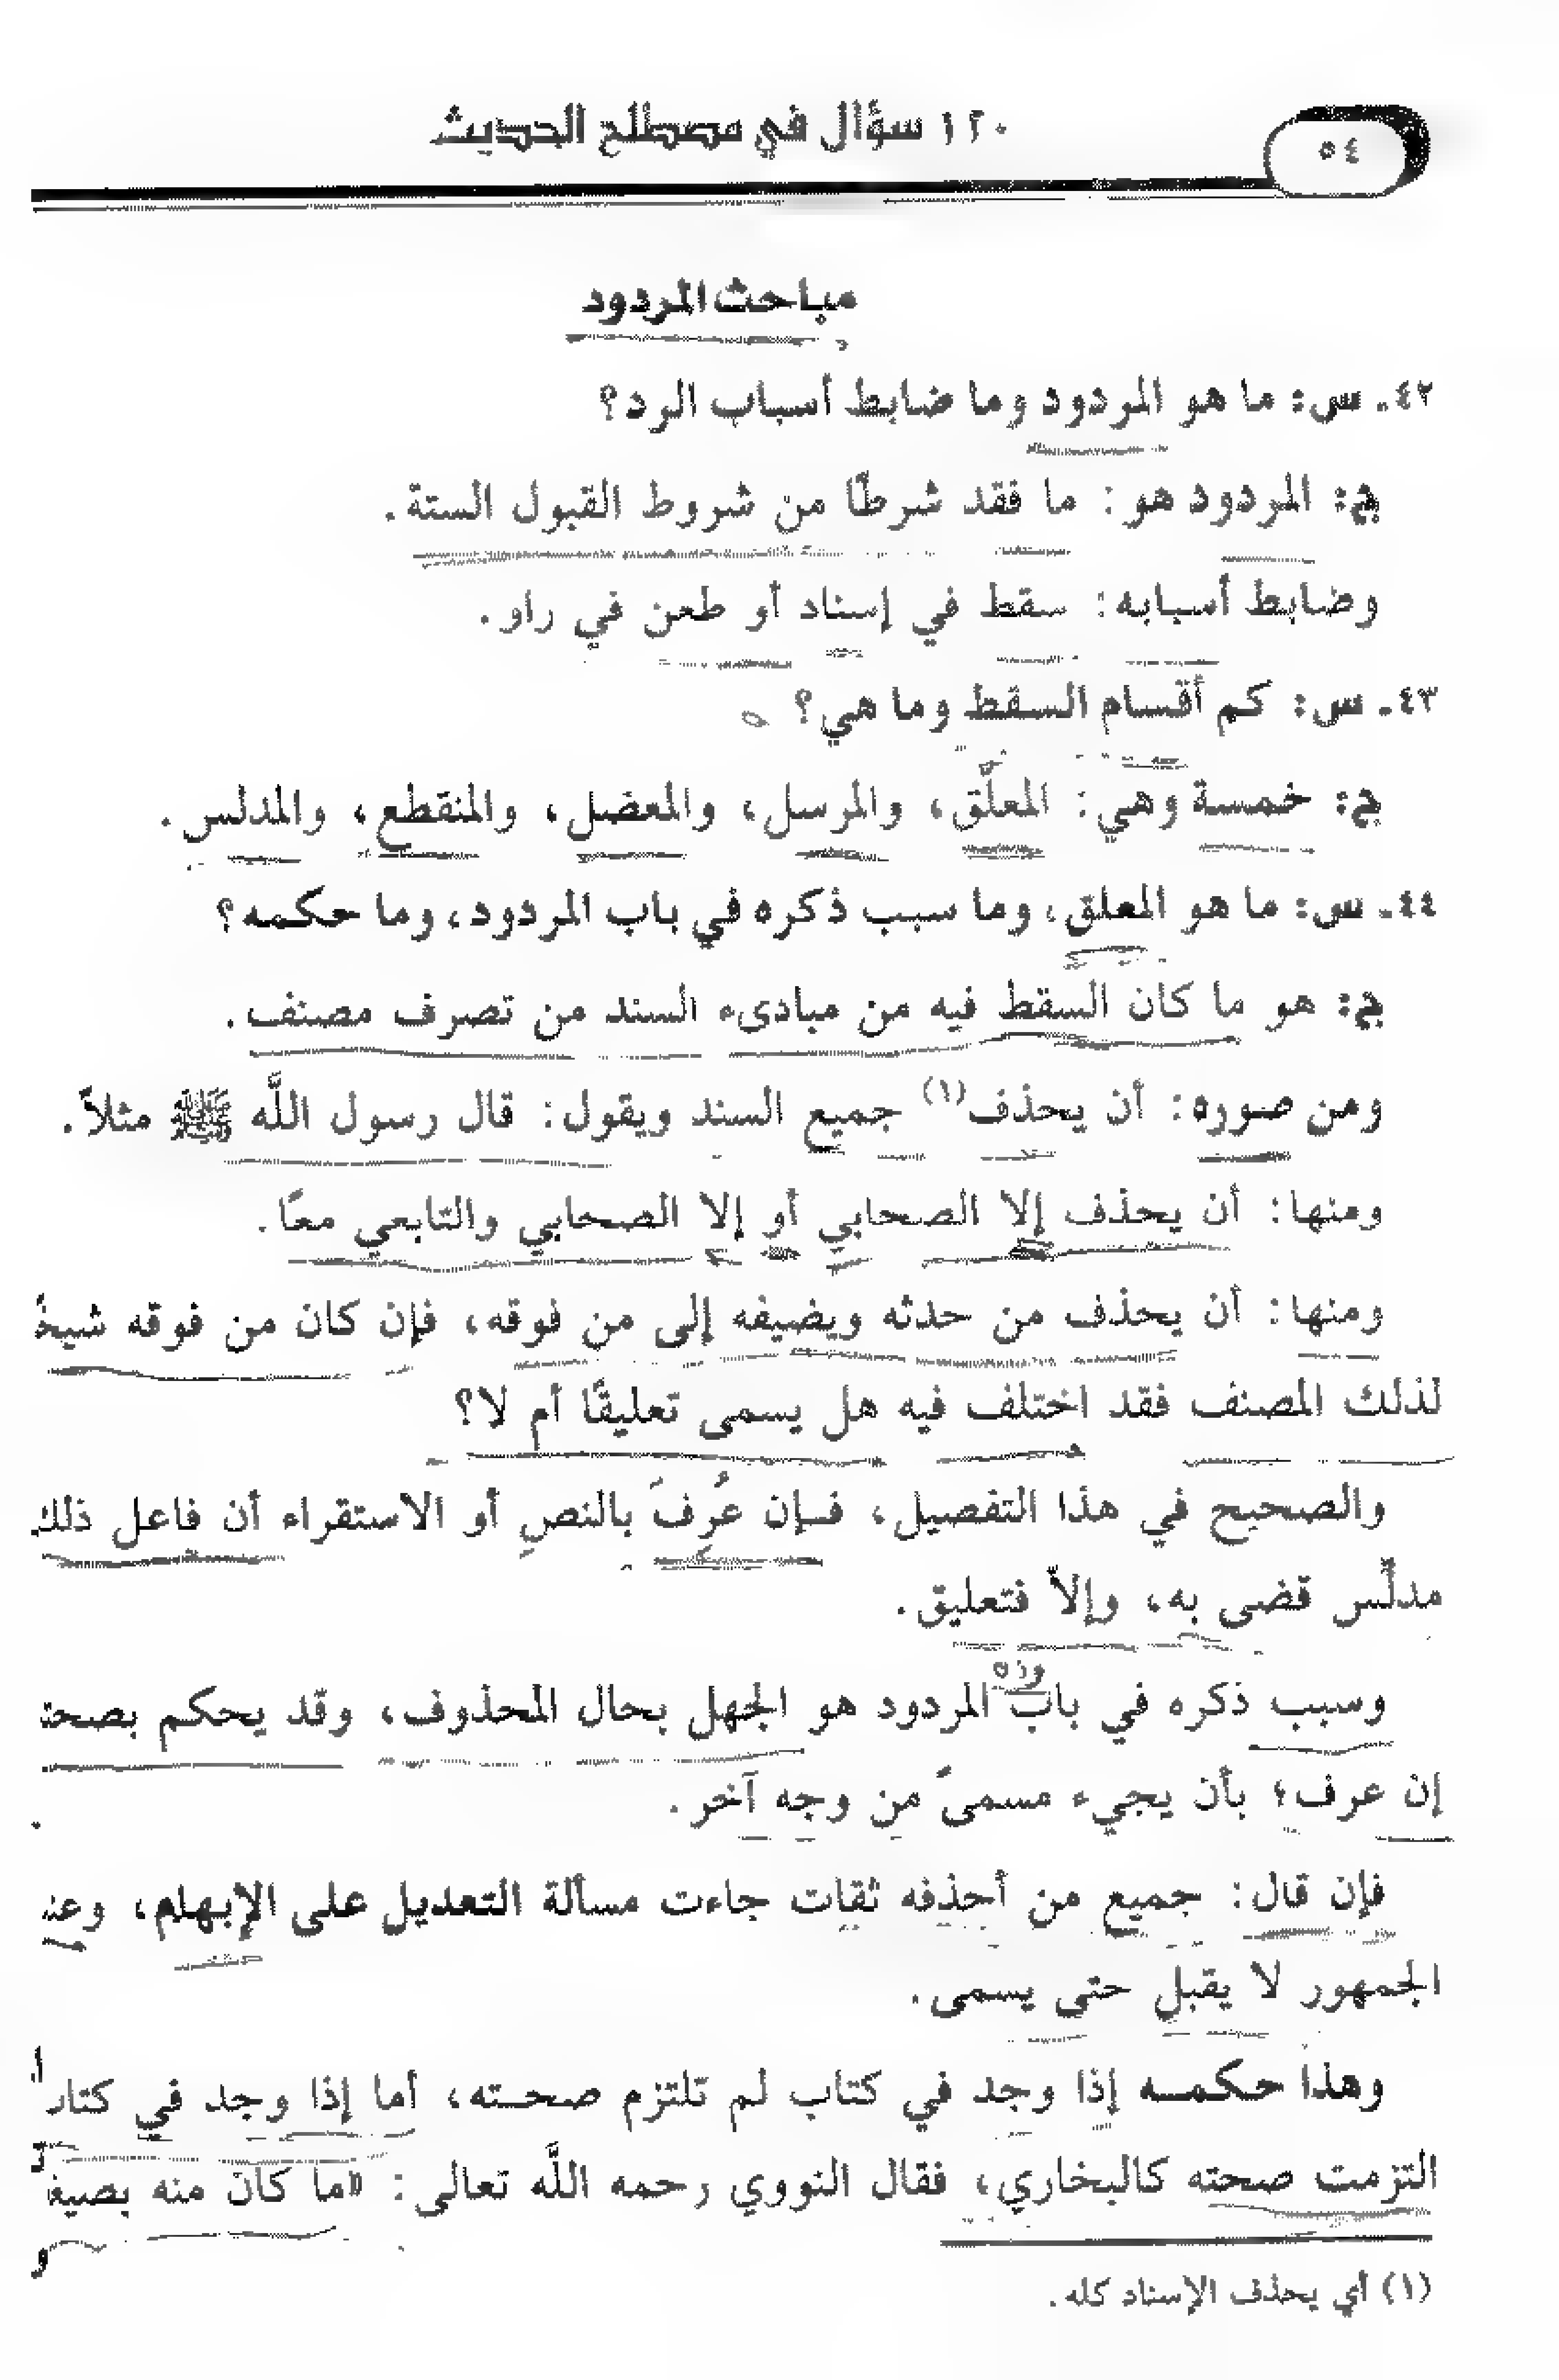 ١٢٠ سؤال في مصطلح الحديث
٥٤
مباحث المردود
٤٢ـ س: ما هو المردود وما ضابط أسباب الرد؟
ج: المردود هو: ما فقد شرطًا من شروط القبول الستة.
وضابط أسبابه: سقط في إسناد أو طعن في راو.
٤٣ـ س: كم أقسام السقط وما هي؟
ج: خمسة وهي: المعلَّق، والمرسل، والمعضل، والمنقطع، والمدلس.
٤٤ـ س: ما هو المعلق، وما سبب ذكره في باب المردود، وما حكمه؟
ج: هو ما كان السقط فيه من مبادىء السند من تصرف مصنف.
ومن صوره: أن يحذف(١) جميع السند ويقول: قال رسول اللَّه ﷺ مثلاً.
ومنها: أن يحذف إلا الصحابي أو إلا الصحابي والتابعي معًا.
ومنها: أن يحذف من حدثه ويضيفه إلى من فوقه، فإن كان من فوقه شيخً
لذلك المصنف فقد اختلف فيه هل يسمى تعليقًا أم لا؟
والصحيح في هذا التفصيل، فإن عُرفَ بالنص أو الاستقراء أن فاعل ذلك
مدلِّس قضى به، وإلاّ فتعليق.
وسبب ذكره في باب المردود هو الجهل بحال المحذوف، وقد يحكم بصحت
إن عرف؛ بأن يجيء مسمىً من وجه آخر.
فإن قال: جميع من أحذفه ثقات جاءت مسألة التعديل على الإبهام، وعن
الجمهور لا يقبل حتى يسمى.
وهذا حكمه إذا وجد في كتاب لم تلتزم صحته، أما إذا وجد في كتا
التزمت صحته كالبخاري، فقال النووي رحمه اللَّه تعالى: «ما كان منه بصيغ
(١) أي يحذف الإسناد كله.